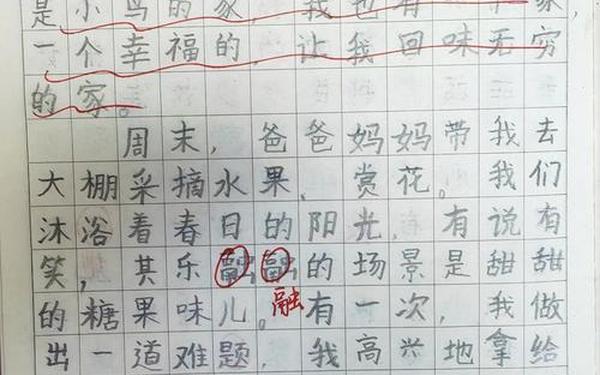 是小鸟的家，我也有一个家，
一个幸福的，让我回味无穷
的家。
周末，爸爸妈妈带我去
大棚采摘水果、赏花。我们
沐浴着春日的阳光，有说有
笑，其乐的场景是甜甜
融
的糖果味儿。有一次，我做
出一道难题，我高兴地拿给